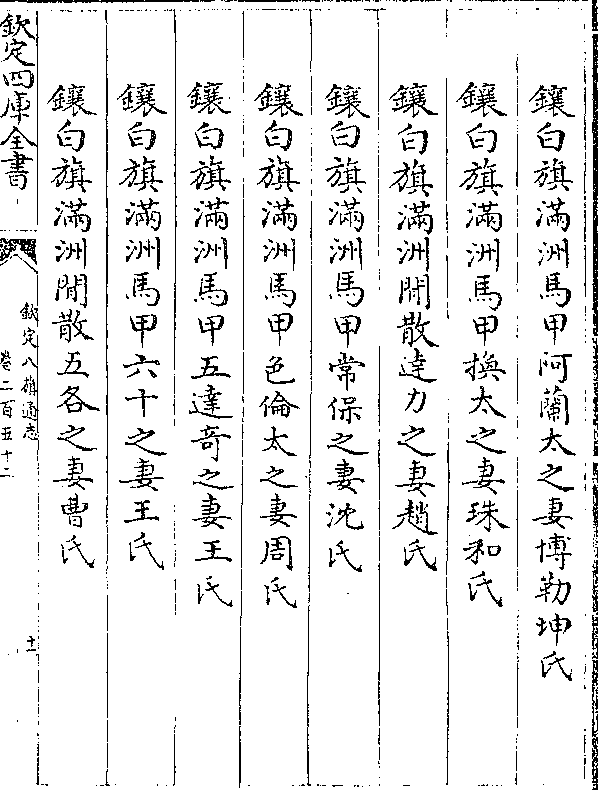 鑲白旗滿洲馬甲阿蘭太之妻博勒坤氏
鑲白旗滿洲馬甲換太之妻珠和氏
鑲白旗滿洲閒散達力之妻趙氏
鑲白旗滿洲馬甲常保之妻沈氏
鑲白旗滿洲馬甲色倫太之妻周氏
鑲白旗滿洲馬甲五達竒之妻王氏
鑲白旗滿洲馬甲六十之妻王氏
鑲白旗滿洲閒散五各之妻曹氏
欽定四庫全書
欽定八旗通志
卷二百五十二
十一